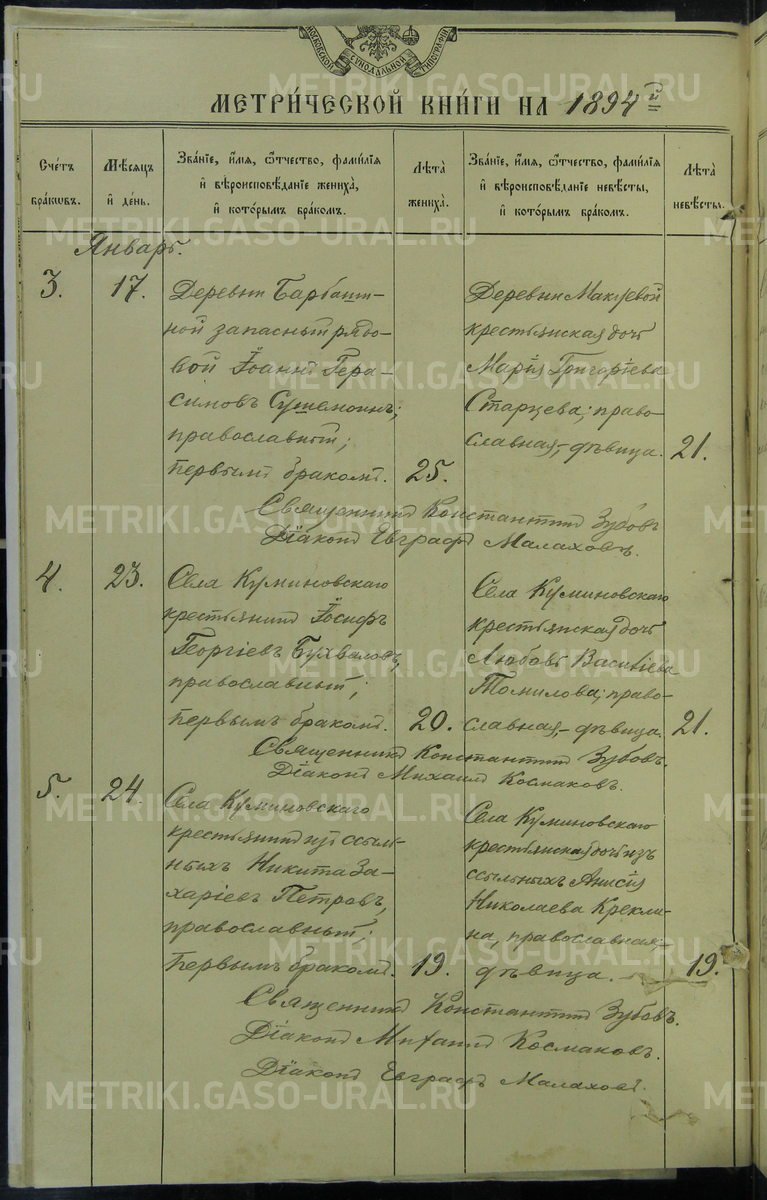 МОСКОВСКОЙ СѴНОДАЛЬНОЙ ТИПОГРАФІИ
МЕТРИ́ЧЕСКОЙ КНИ́ГИ НА 1894й
Сче́тъ
бра́кѡвъ.
Мѣ́сяцъ
и҆ де́нь.
Зва́нїе, и҆́мя, ѻ҆́тчество, фамѝлїя
и҆ вѣроисповѣ́данїе жениха̀,
и҆ кото́рымъ бра́комъ.
Лѣта̀
жениха̀.
Зва́нїе, и҆́мя, ѻ҆́тчество, фамѝлїя
и҆ вѣроисповѣ́данїе невѣ́сты,
и҆ кото́рымъ бра́комъ.
Лѣта̀
невѣ́сты.
Январь.
3.
17.
Деревни Барбаш-
ной запасный рядо-
вой Іоаннъ Гера-
симовъ
православный;
первымъ бракомъ.
25.
Деревни
крестьянская дочь
Марія Григоріева
Старцева; право-
славная,-дѣвица.
21.
Священникъ Константинъ Зубовъ
Діаконъ Евграфъ Малаховъ.
4.
23.
Села Куминовскаго
крестьянинъ Іосифъ
Георгіевъ Бухваловъ,
православный;
первымъ бракомъ.
20.
Села Куминовскаго
крестьянская дочь
Любовь Василіева
Томилова; право-
славная,-дѣвица.
21.
Священникъ Константинъ Зубовъ.
Діаконъ Михаилъ Космаковъ.
5.
24.
Села Куминовскаго
крестьянинъ изъ ссыль-
ныхъ Никита За-
харіевъ Петровъ,
православный;
первымъ бракомъ.
19.
Села Куминовскаго
крестьянская дочь изъ
ссыльныхъ Анисія
Николаева Крекли-
на, православная-
дѣвица.
19.
Священникъ Константинъ Зубовъ.
Діаконъ Михаилъ Космаковъ.
Діаконъ Евграфъ Малаховъ.
METRIKI.GASO-URAL.RU